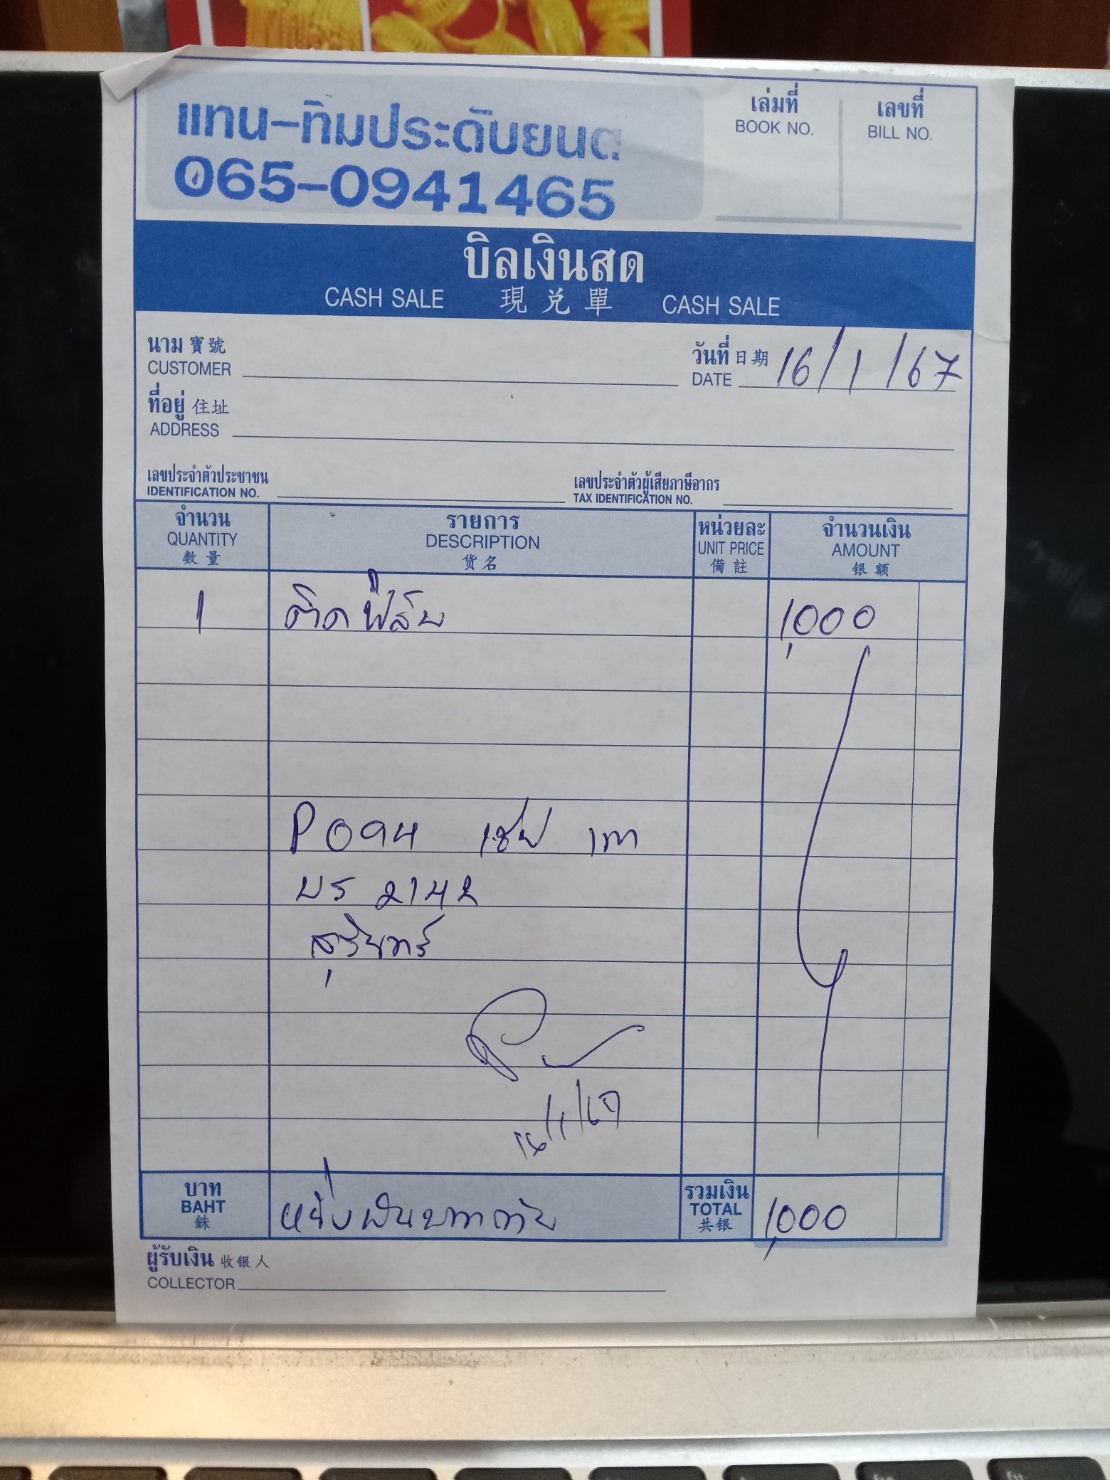 แทน-ทิมประดับยนต
065-0941465
เล่มที่
BOOK NO.
เลขที่
BILL NO.
บิลเงินสด
CASH SALE 現兑單 CASH SALE
นาม 寶號
CUSTOMER
วันที่ 日期
DATE 16/1/67
ที่อยู่ 住址
ADDRESS
เลขประจำตัวประชาชน
IDENTIFICATION NO.
เลขประจำตัวผู้เสียภาษีอากร
TAX IDENTIFICATION NO.
จำนวน รายการ หน่วยละ จำนวนเงิน
QUANTITY DESCRIPTION UNIT PRICE AMOUNT
数量 货名 備註 银额
1 ติดฟิล์ม 1,000
P094
บร 2142
สุรินทร์
16/1/67
บาท
BAHT
銖
หนึ่งพันบาทถ้วน
รวมเงิน
TOTAL
共银
1,000
ผู้รับเงิน 收银人
COLLECTOR